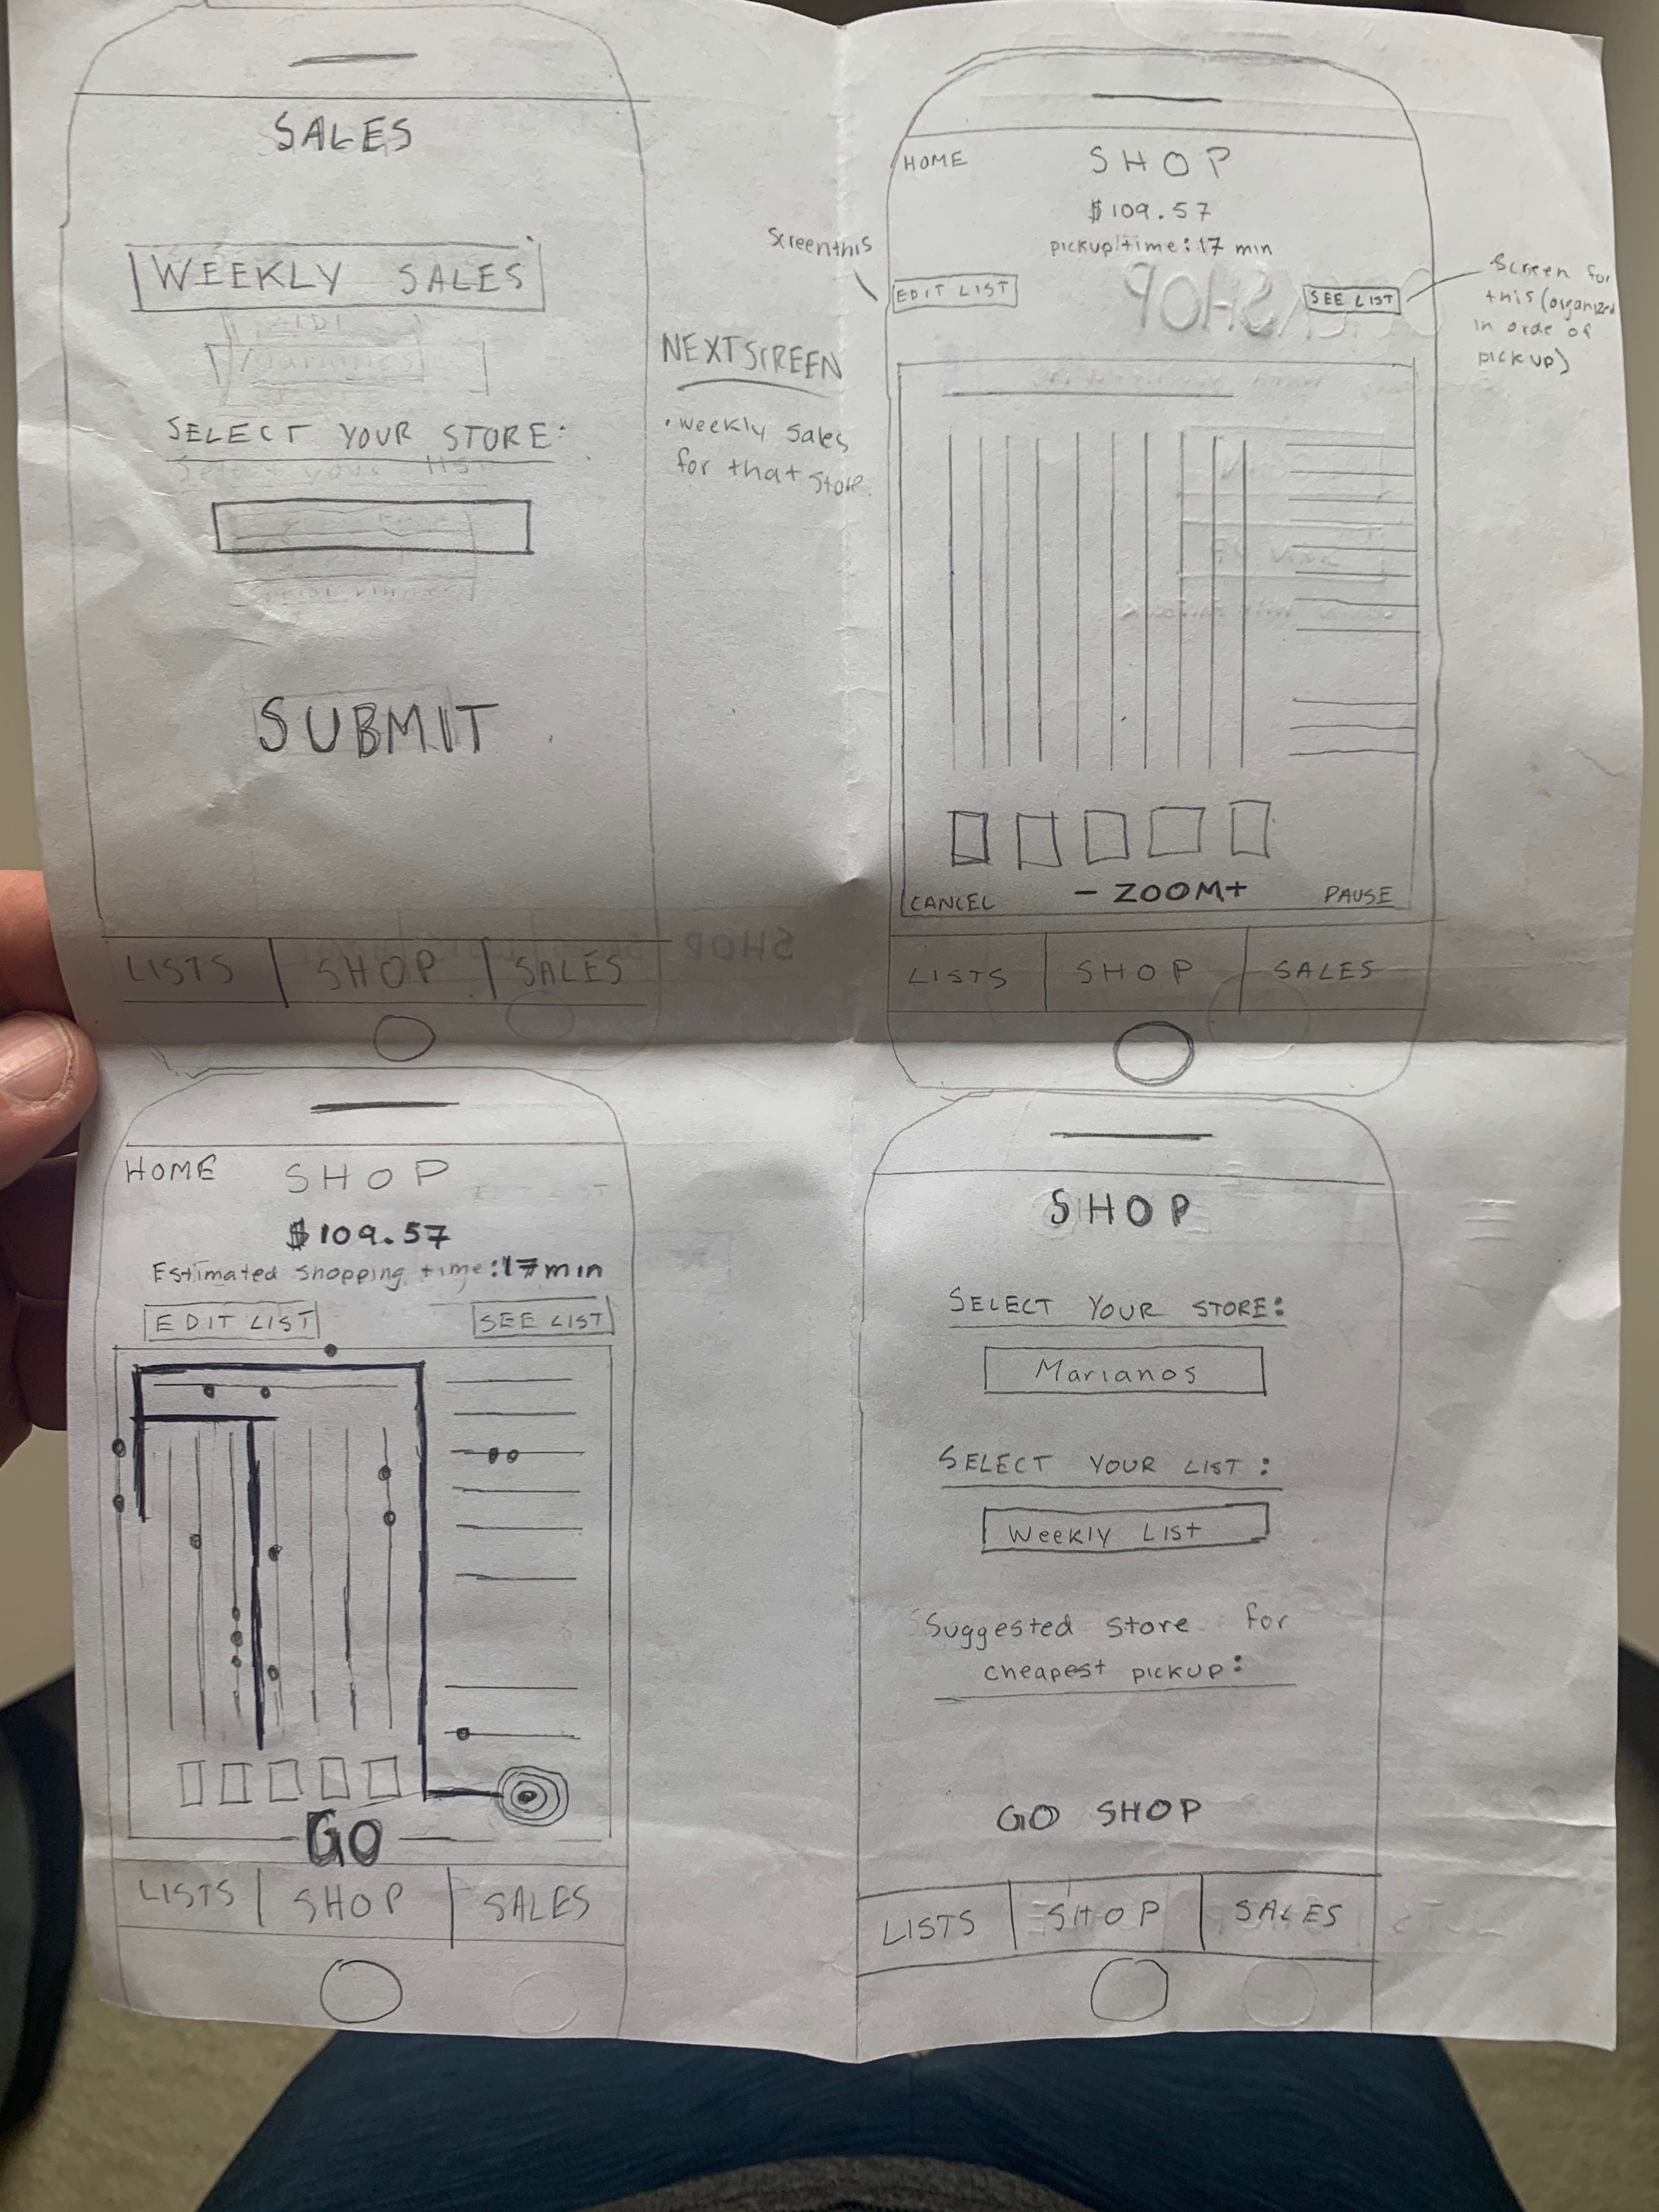 SALES
WEEKLY SALES
SELECT YOUR STORE:
SUBMIT
LISTS SHOP SALES
NEXT SCREEN
• weekly sales
for that store.
HOME SHOP
$109.57
pickup time: 17 min
Screen this
EDIT LIST SEE LIST
Screen for
this (organized
in orde of
pickup)
CANCEL - ZOOM+ PAUSE
LISTS SHOP SALES
HOME SHOP
$109.57
Estimated shopping time: 17 min
EDIT LIST SEE LIST
GO
LISTS SHOP SALES
SHOP
SELECT YOUR STORE:
Marianos
SELECT YOUR LIST:
Weekly List
Suggested store for
cheapest pickup:
GO SHOP
LISTS SHOP SALES